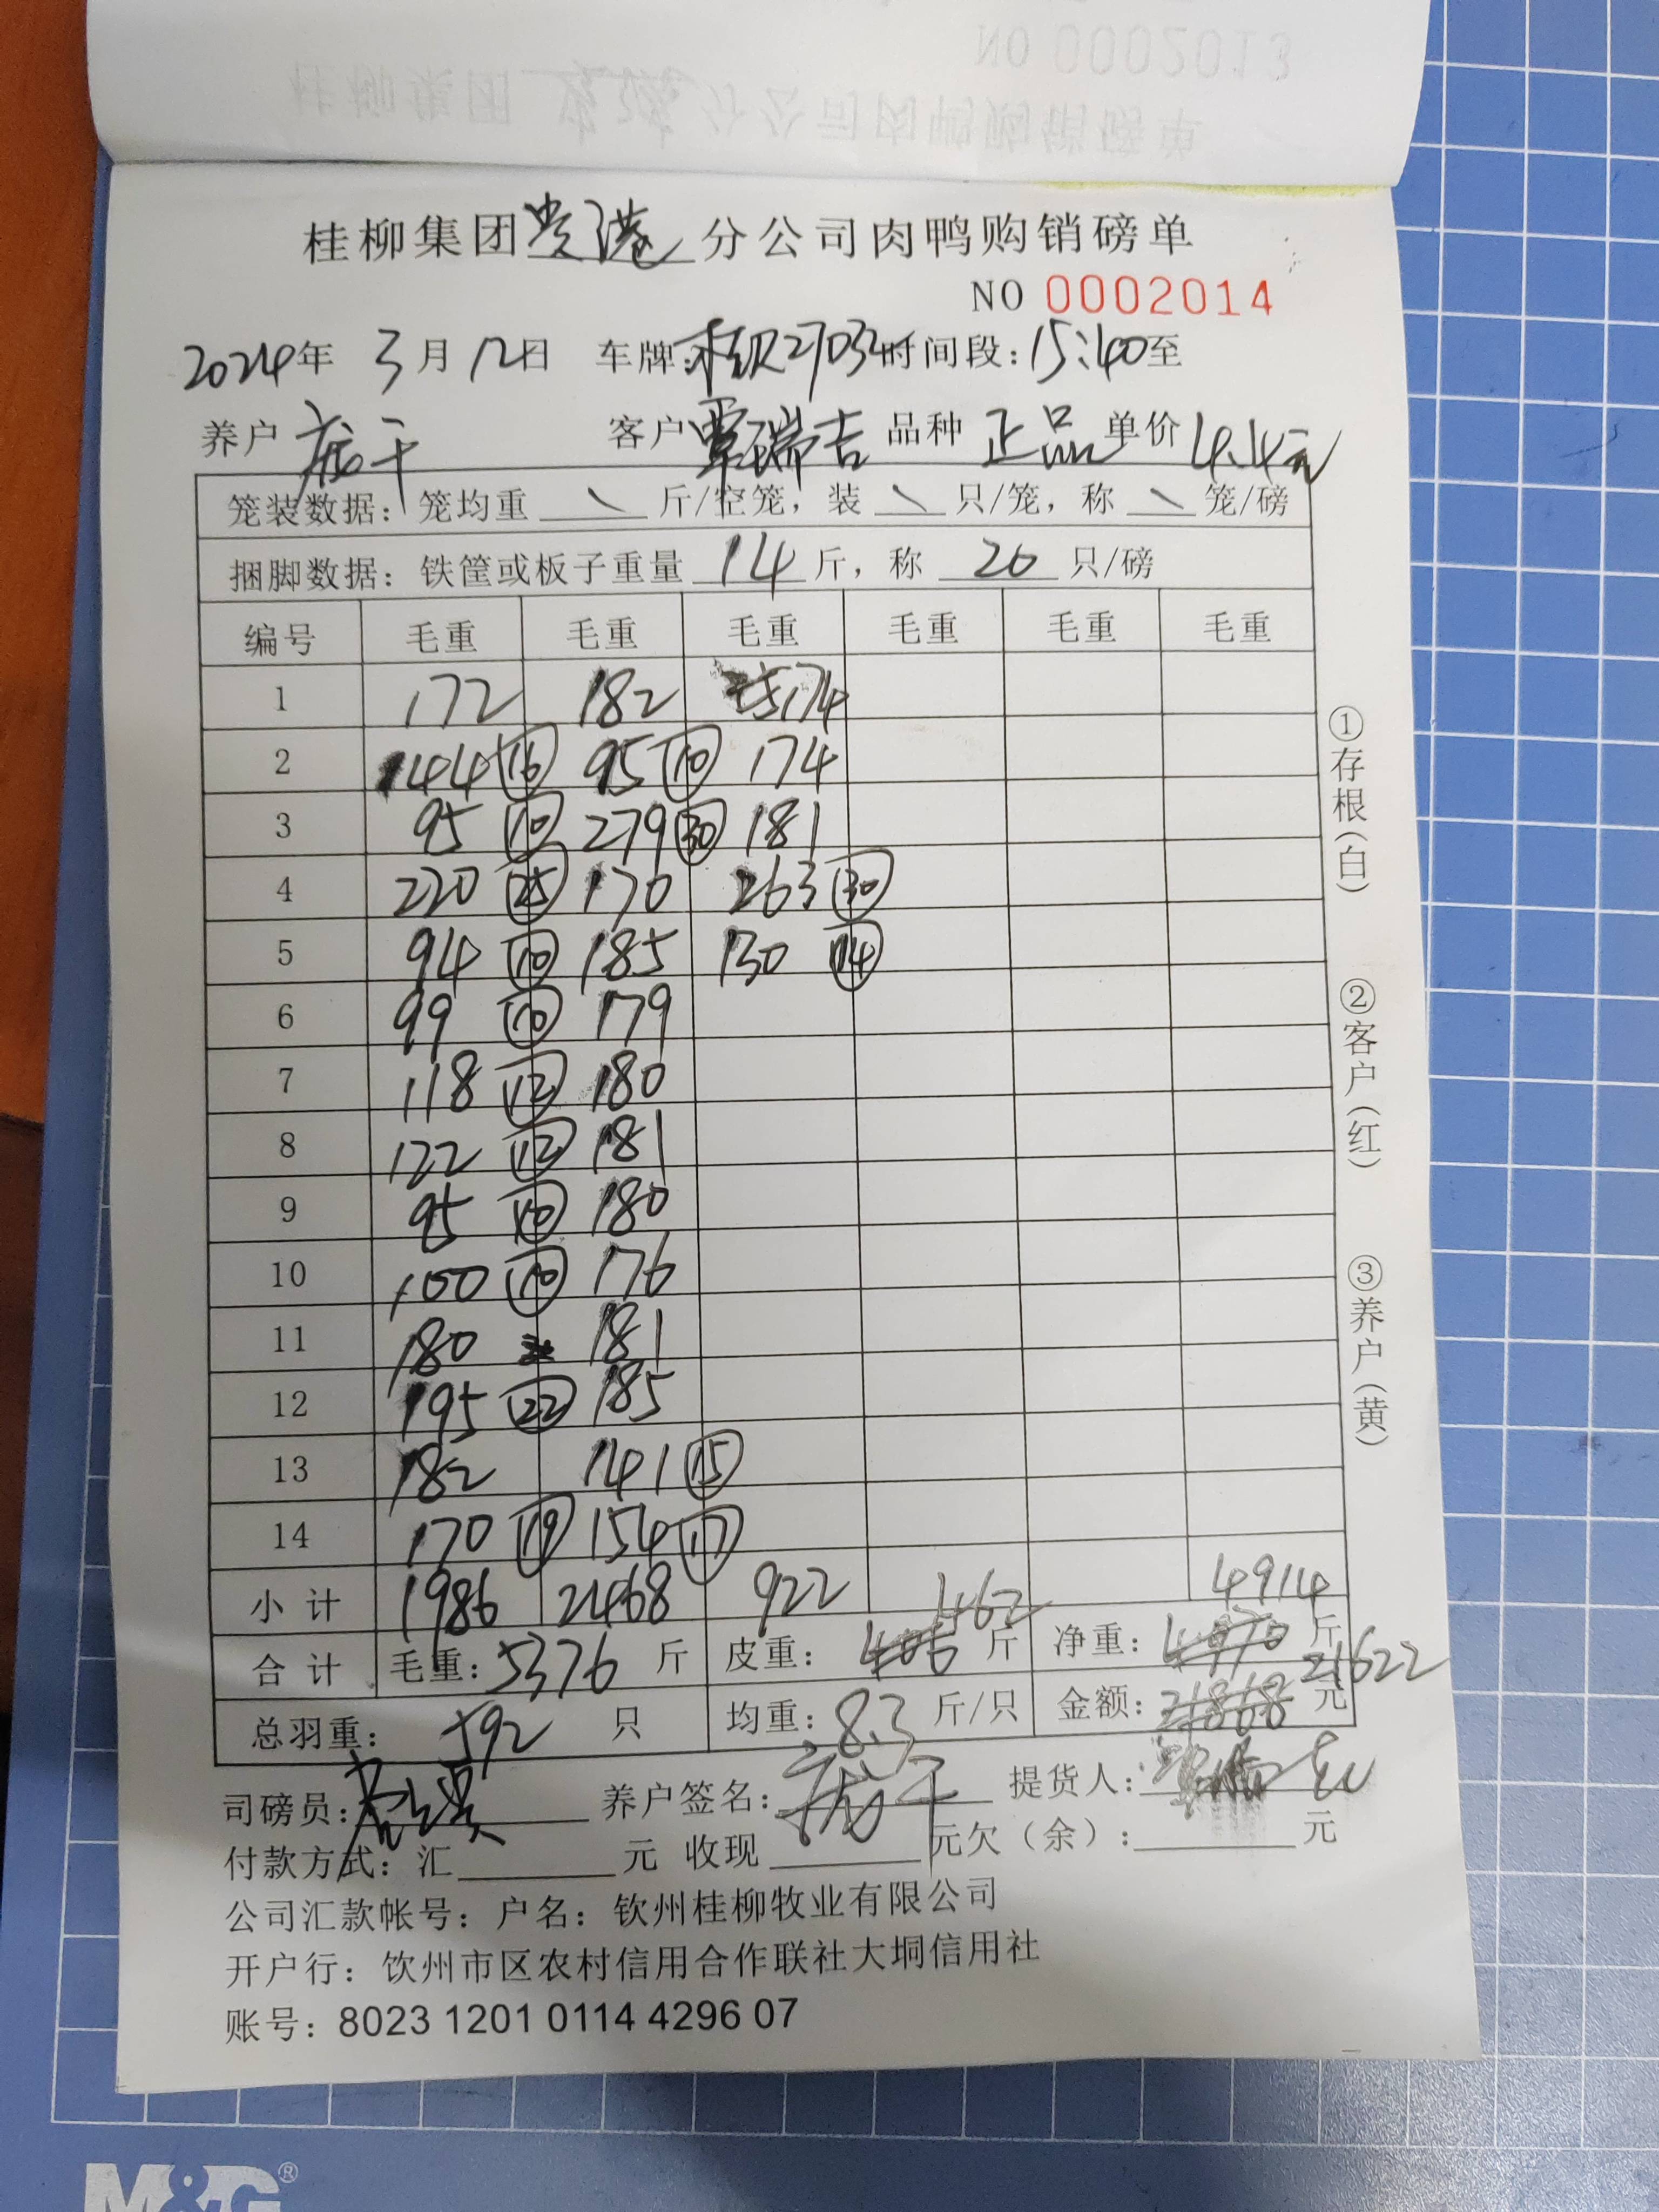 NO 0002013
桂柳集团贵港分公司肉鸭购销磅单
桂柳集团贵港分公司肉鸭购销磅单
NO 0002014
2024年 3月12日 车牌: 27032 时间段:15:40至
养户 庞千 客户 覃瑞吉 品种 正品 单价 4.4元
笼装数据: 笼均重 \ 斤/空笼, 装 \ 只/笼, 称 \ 笼/磅
捆脚数据: 铁筐或板子重量 14 斤, 称 20 只/磅
编号 毛重 毛重 毛重 毛重 毛重 毛重
1 172 182 174
2 144 ⑯ 95 ⑩ 174
3 95 ⑩ 279 ㉚ 181
4 220 ㉕ 170 263 ㉚
5 94 ⑩ 185 130 ⑭
6 99 ⑩ 179
7 118 ⑫ 180
8 122 ⑫ 181
9 95 ⑩ 180
10 100 ⑩ 176
11 180 181
12 195 ㉒ 185
13 182 141 ⑮
14 170 ⑲ 154 ⑰
小计 1986 2468 922
462 4914
合计 毛重: 5376 斤 皮重: 406 斤 净重: 4970 斤
21622
总羽重: 592 只 均重: 8.3 斤/只 金额: 21868 元
司磅员: 养户签名: 庞千 提货人:
付款方式: 汇 元 收现 元欠(余): 元
公司汇款帐号: 户名: 钦州桂柳牧业有限公司
开户行: 饮州市区农村信用合作联社大垌信用社
账号: 8023 1201 0114 4296 07
①存根(白)
②客户(红)
③养户(黄)
M&G®